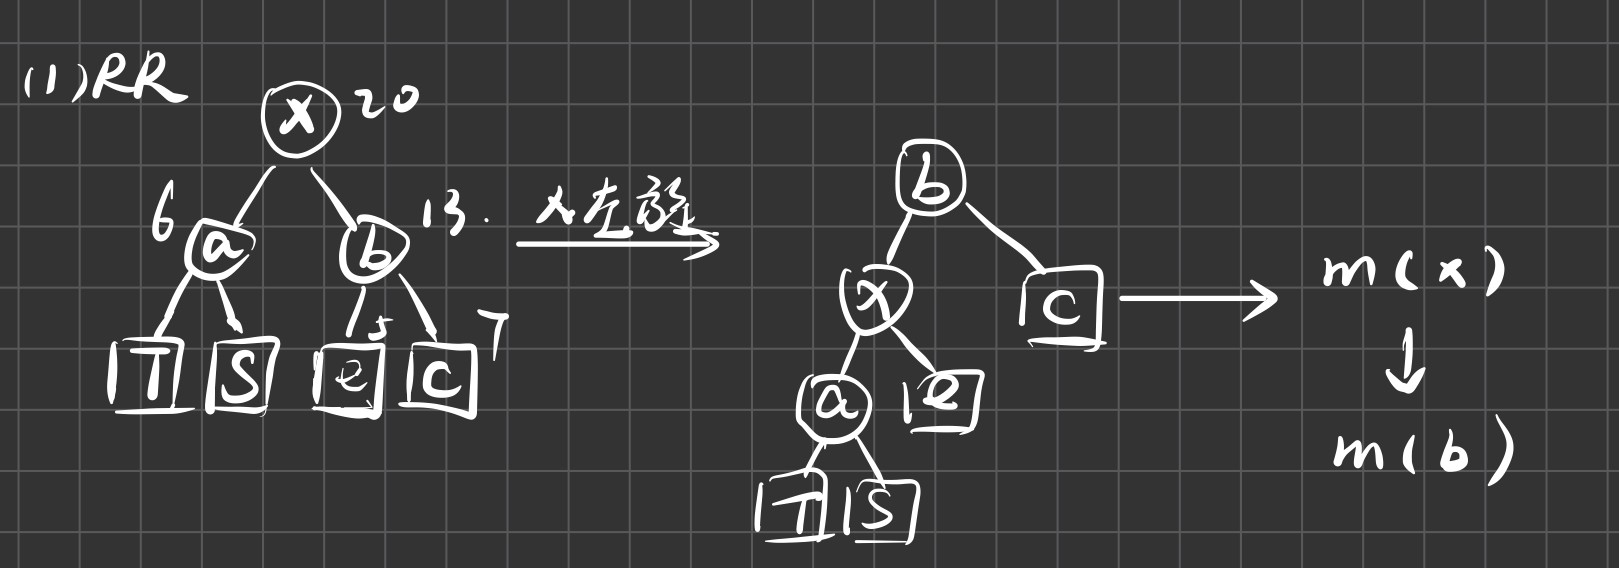 (1)RR
x 20
6 a b 13.
T S e 5 c 7
x左旋
b
x c
a e
T S
m(x)
m(b)